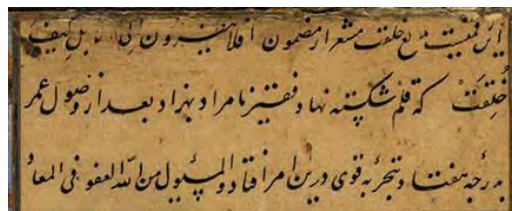 این نقشیست بدیع خلقت مشعر از مضمون افلا ینظرون الی الابل کیف
خُلِقَتْ که قلم شکسته نهاد فقیر نامراد بهزاد بعد از وصول عمر
بدرجه هفتاد و تجربه قوی درین امر افتاد و المسئول من الله العفو فی المعاد